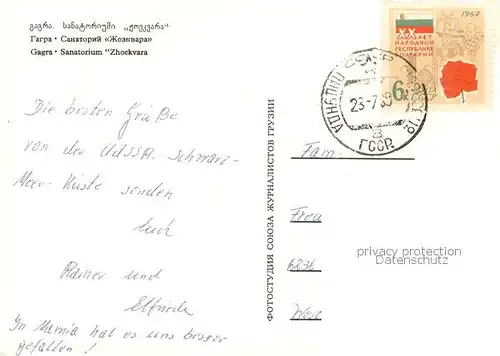 გაგრა. სანატორიუმი „ჟოეკვარა“
Гагра • Санаторий «Жоэквара»
Gagra • Sanatorium "Zhoekvara
Die besten Grüße
von der UdSSR-Schwarz-
Meer-Küste senden
Euch
Rainer und
Elfriede
In Mamia hat es uns besser
gefallen!
ФОТОСТУДИЯ СОЮЗА ЖУРНАЛИСТОВ ГРУЗИИ
1964
XX
ЛЕТ
НАРОДНОЙ
РЕСПУБЛИКЕ
БОЛГАРИИ
6
23-7
В
ГССР
Fam.
Frau
6236
West
privacy protection
Datenschutz